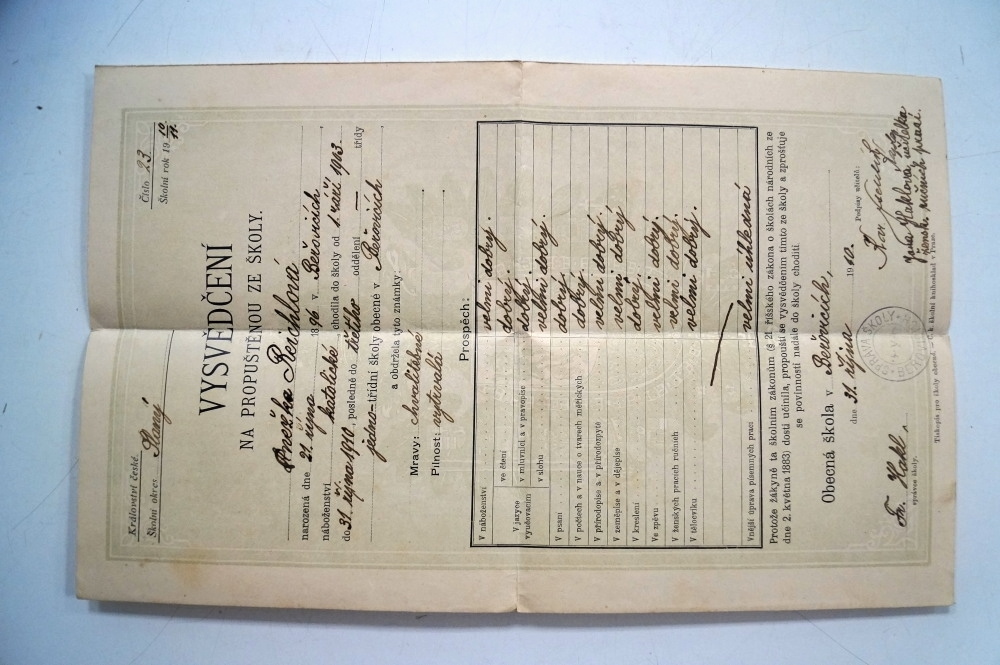 Číslo 23
Školní rok 19 10/11.
Království české.
Školní okres Slaný
VYSVĚDČENÍ
NA PROPUŠTĚNOU ZE ŠKOLY.
Anežka Reichlová
narozená dne 21. října 1896 v Beřovicích
náboženství katolické chodila do školy od 1. září 1903
do 31. října 1910, posledně do třetího oddělení — třídy
jedno-třídní školy obecné v Beřovicích
a obdržela tyto známky:
Mravy: chvalitebné
Pilnost: vytrvalá
Prospěch:
V náboženství velmi dobrý.
V jazyce vyučovacím
ve čtení dobrý.
v mluvnici a v pravopise dobrý.
v slohu velmi dobrý
V psaní dobrý
V počtech a v nauce o tvarech měřických dobrý.
V přírodopise a v přírodozpytě velmi dobrý.
V zeměpise a v dějepise velmi dobrý
V kreslení dobrý.
Ve zpěvu velmi dobrý.
V ženských pracech ručních velmi dobrý.
V tělocviku velmi dobrý.
Vnější úprava písemných prací velmi úhledná
Protože žákyně ta školním zákonům (§ 21. říšského zákona o školách národních ze
dne 2. května 1883) dosti učinila, propouští se vysvědčením tímto ze školy a zprošťuje
se povinnosti nadále do školy choditi
Obecná škola v Beřovicích,
dne 31. října 1910.
Podpisy učitelů:
Fr. Hakl.
správce školy.
Haklová, učitelka
ženských ručních prací.
SPRÁVA ŠKOLY
Tiskopis pro školy obecné.